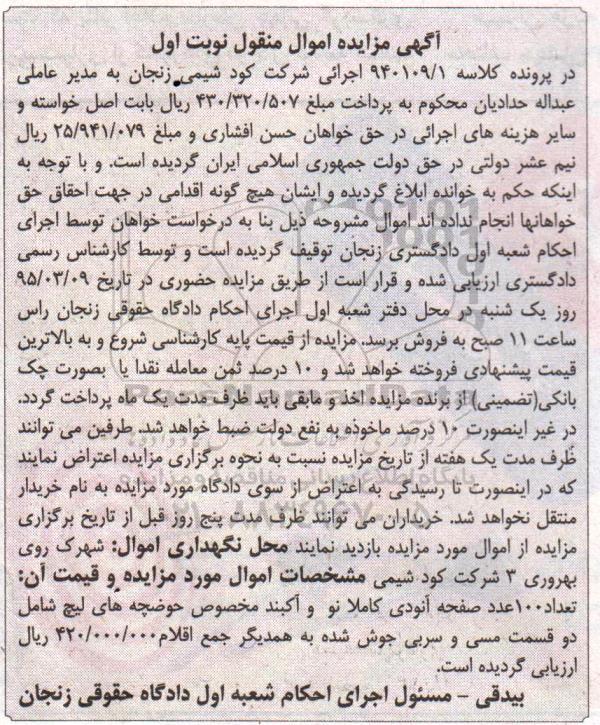 آگهی مزایده اموال منقول نوبت اول
در پرونده کلاسه ۹۴۰۱۰۹/۱ اجرائی شرکت کود شیمی زنجان به مدیر عاملی
عبداله حدادیان محکوم به پرداخت مبلغ ۴۳۰/۳۲۰/۵۰۷ ریال بابت اصل خواسته و
سایر هزینه های اجرائی در حق خواهان حسن افشاری و مبلغ ۲۵/۹۴۱/۰۷۹ ریال
نیم عشر دولتی در حق دولت جمهوری اسلامی ایران گردیده است. و با توجه به
اینکه حکم به خوانده ابلاغ گردیده و ایشان هیچ گونه اقدامی در جهت احقاق حق
خواهانها انجام نداده اند اموال مشروحه ذیل بنا به درخواست خواهان توسط اجرای
احکام شعبه اول دادگستری زنجان توقیف گردیده است و توسط کارشناس رسمی
دادگستری ارزیابی شده و قرار است از طریق مزایده حضوری در تاریخ ۹۵/۰۳/۰۹
روز یک شنبه در محل دفتر شعبه اول اجرای احکام دادگاه حقوقی زنجان راس
ساعت ۱۱ صبح به فروش برسد. مزایده از قیمت پایه کارشناسی شروع و به بالاترین
قیمت پیشنهادی فروخته خواهد شد و ۱۰ درصد ثمن معامله نقدا یا بصورت چک
بانکی(تضمینی) از برنده مزایده اخذ و مابقی باید ظرف مدت یک ماه پرداخت گردد.
در غیر اینصورت ۱۰ درصد ماخوذه به نفع دولت ضبط خواهد شد. طرفین می توانند
ظرف مدت یک هفته از تاریخ مزایده نسبت به نحوه برگزاری مزایده اعتراض نمایند
که در اینصورت تا رسیدگی به اعتراض از سوی دادگاه مورد مزایده به نام خریدار
منتقل نخواهد شد. خریداران می توانند ظرف مدت پنج روز قبل از تاریخ برگزاری
مزایده از اموال مورد مزایده بازدید نمایند محل نگهداری اموال: شهرک روی
بهروری ۳ شرکت کود شیمی مشخصات اموال مورد مزایده و قیمت آن:
تعداد۱۰۰عدد صفحه آنودی کاملا نو و آکبند مخصوص حوضچه های لیچ شامل
دو قسمت مسی و سربی جوش شده به همدیگر جمع اقلام۴۲۰/۰۰۰/۰۰۰ ریال
ارزیابی گردیده است.
بیدقی - مسئول اجرای احکام شعبه اول دادگاه حقوقی زنجان